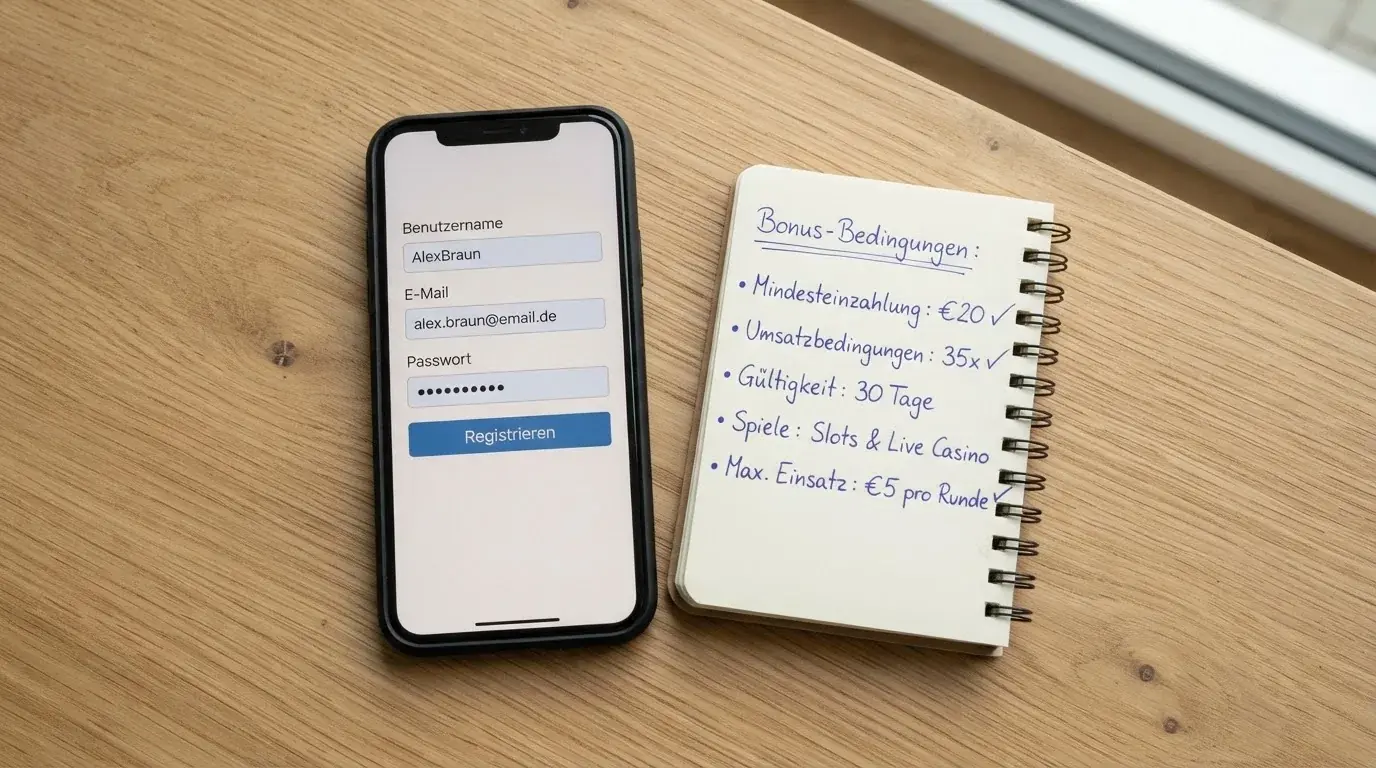 Benutzername
AlexBraun
E-Mail
alex.braun@email.de
Passwort
••••••••••
Registrieren
Bonus-Bedingungen:
• Mindesteinzahlung: €20 ✓
• Umsatzbedingungen: 35x ✓
• Gültigkeit: 30 Tage
• Spiele: Slots & Live Casino
• Max. Einsatz: €5 pro Runde ✓